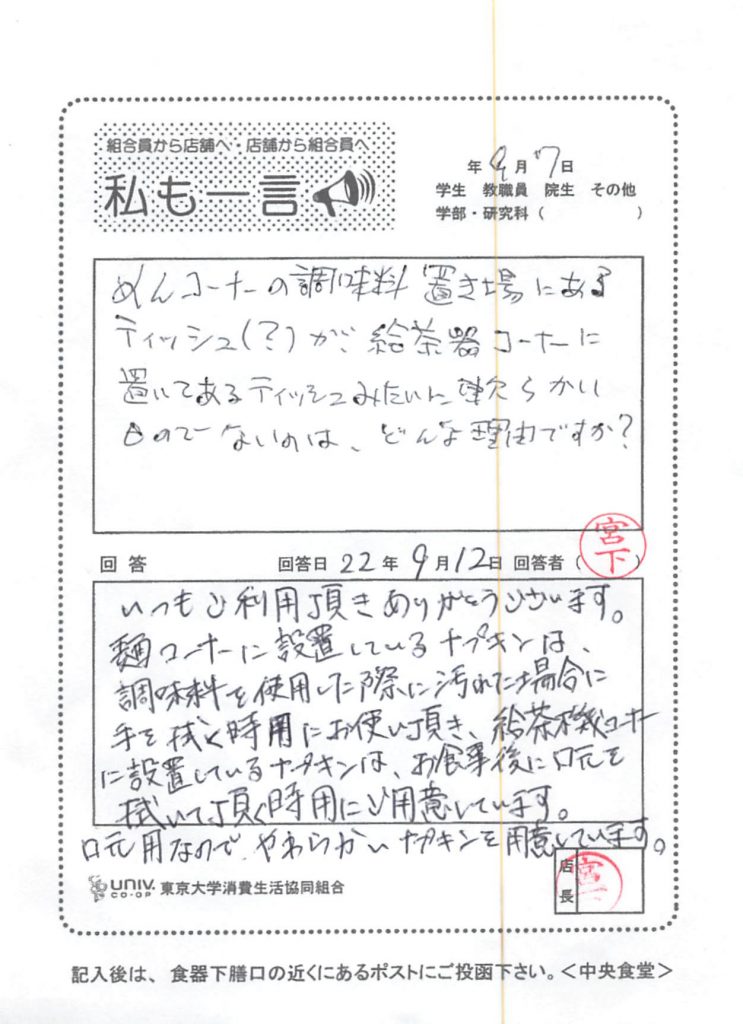 組合員から店舗へ・店舗から組合員へ
私も一言
年9月7日
学生 教職員 院生 その他
学部・研究科（ ）
めんコーナーの調味料置き場にある
ティッシュ(?)が、給茶器コーナーに
置いてあるティッシュみたいに軟らかい
ものでないのは、どんな理由ですか?
回答 回答日 22年9月12日 回答者（宮下）
いつもご利用頂きありがとうございます。
麺コーナーに設置しているナプキンは、
調味料を使用した際に汚れた場合に
手を拭く時用にお使い頂き、給茶機コーナー
に設置しているナプキンは、お食事後に口元を
拭いて頂く時用にご用意しています。
口元用なので、やわらかいナプキンを用意しています。
店長 宮下
UNIV. CO-OP 東京大学消費生活協同組合
記入後は、食器下膳口の近くにあるポストにご投函下さい。＜中央食堂＞